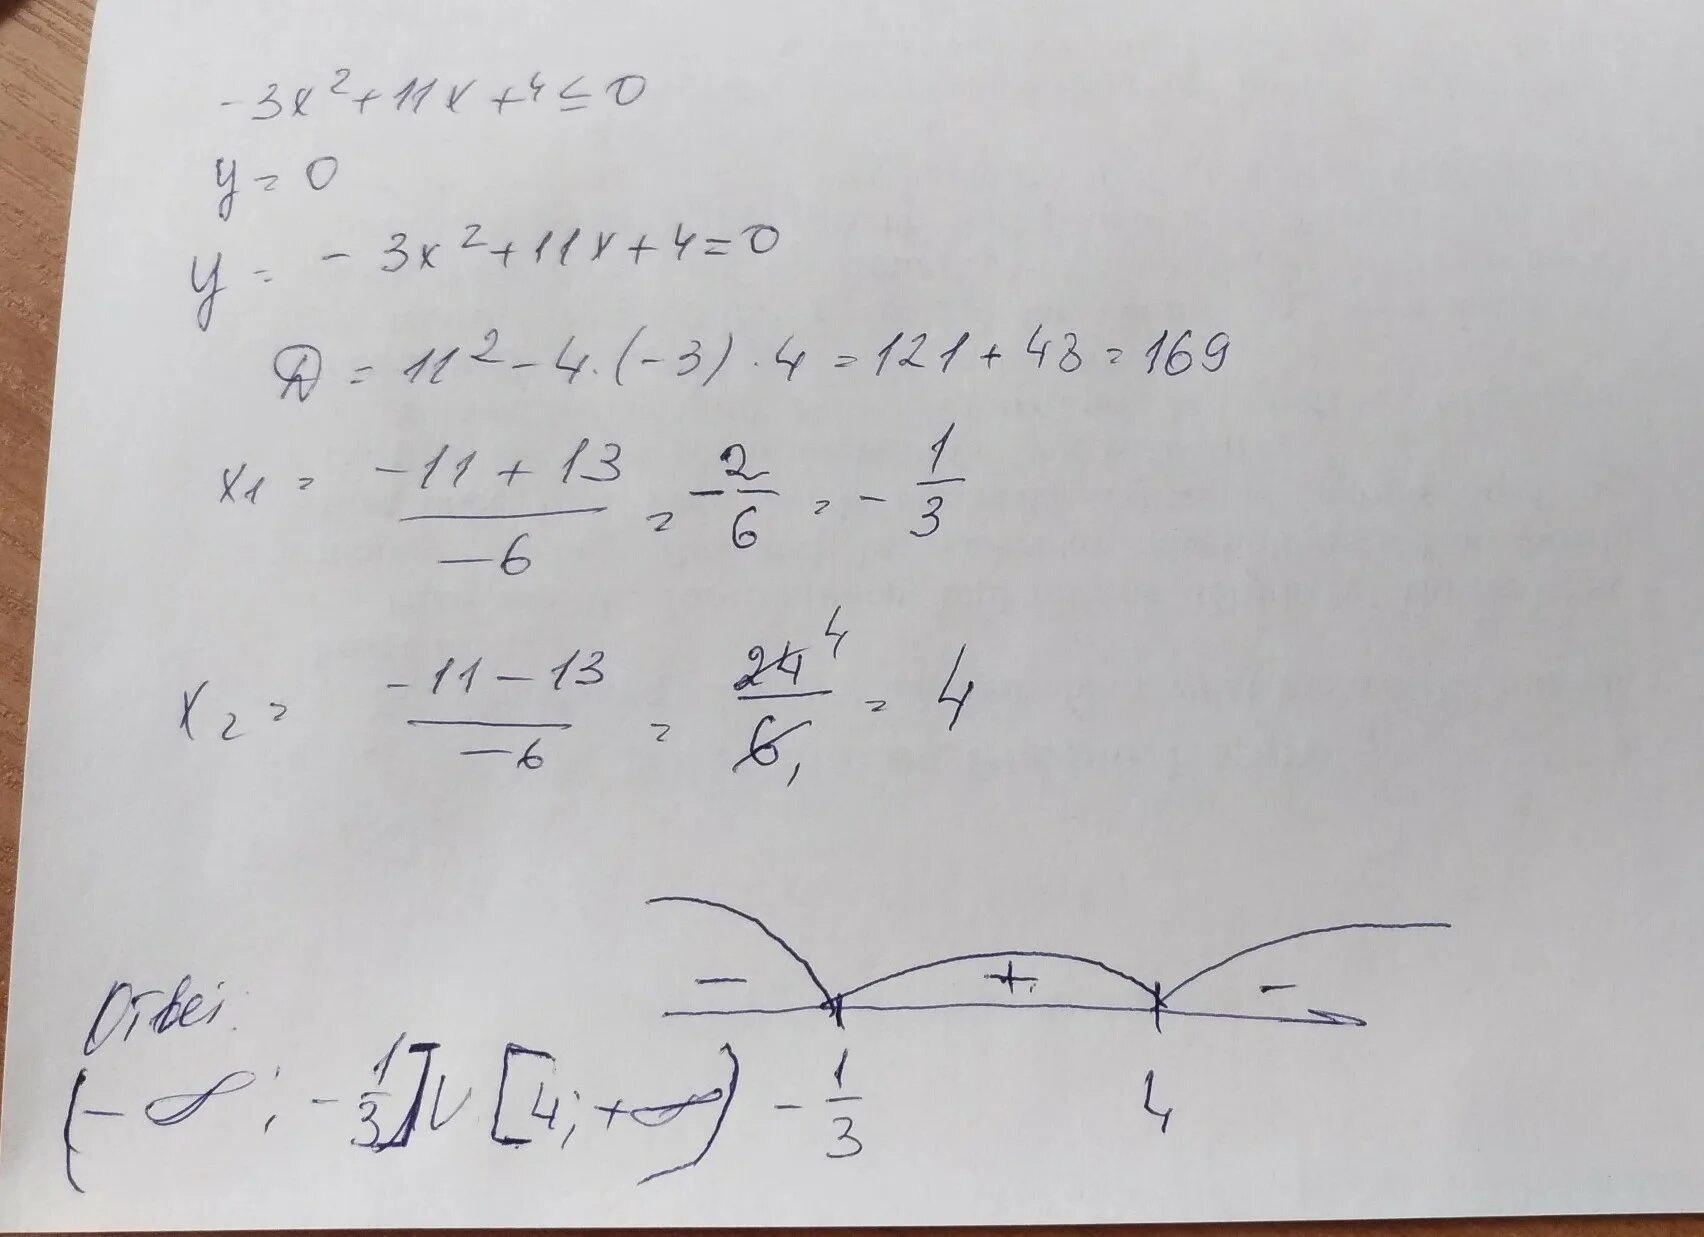 -3x²+11x+4≤0
y=0
y = -3x²+11x+4=0
D = 11²-4·(-3)·4=121+48=169
x1 = (-11+13)/(-6) = -2/6 = -1/3
x2 = (-11-13)/(-6) = 24/6 = 4
4
1
- + -
-1/3 4
Ответ:
(-∞; -1/3]∪[4;+∞)